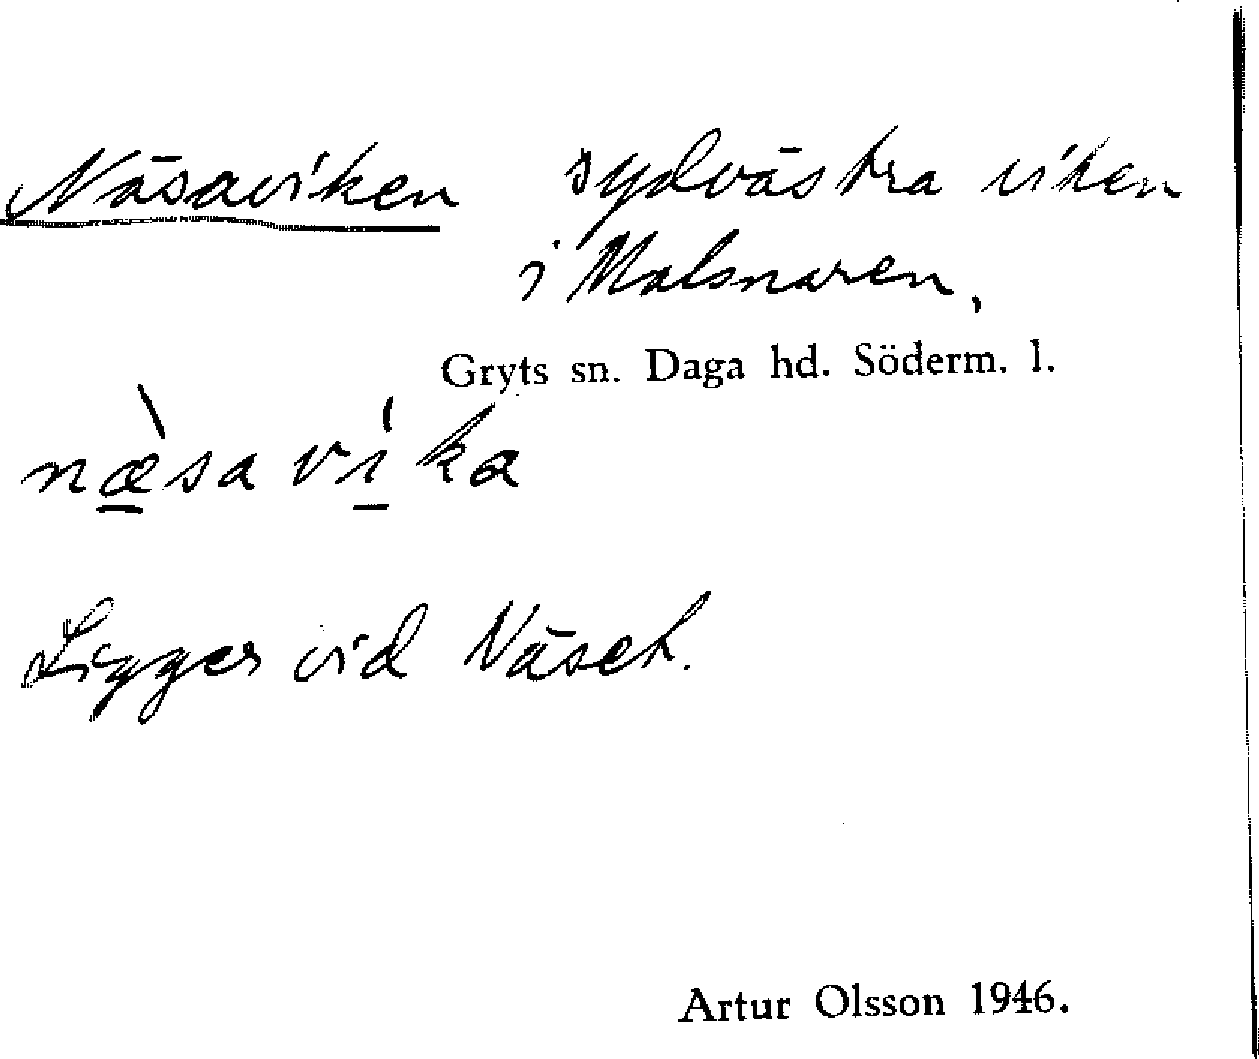 Näsaviken sydvästra viken
i Malsnaren.
Gryts sn. Daga hd. Söderm. l.
næ̀savíka
Ligger vid Näset.
Artur Olsson 1946.